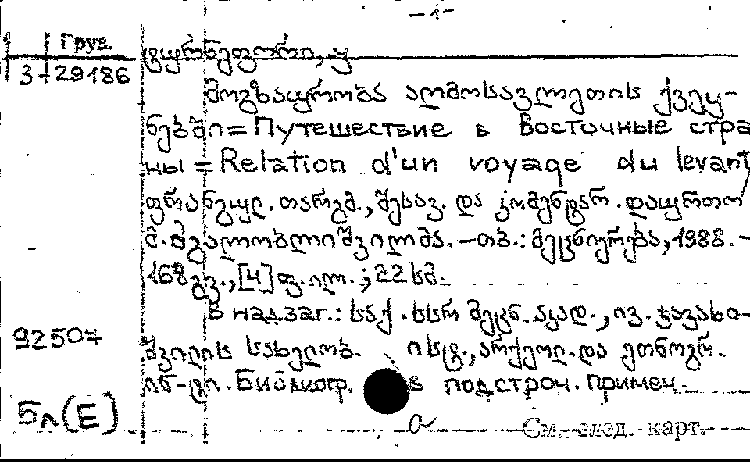 -1-
Груз.
3-29186
ტურნეფორი, ჟ
მოგზაურობა აღმოსავლეთის ქვეყ-
ნებში = Путешествие в восточные стра
ны = Relation d'un voyage du levant
ფრანგულ. თარგმ., შესავ. და კომენტარ. დაურთო
მ. მგალობლიშვილმა. - თბ.: მეცნიერება, 1988. -
168 გვ., [4] ფ. ილ.; 22 სმ.
В надзаг.: საქ. სსრ მეცნ. აკად., ივ. ჯავახი-
92507
შვილის სახელობ. ისტ., არქეოლ. და ეთნოგრ.
ინ-ტი. Библиогр. в подстроч. примеч.
5л(Е)
а
См. след. карт.